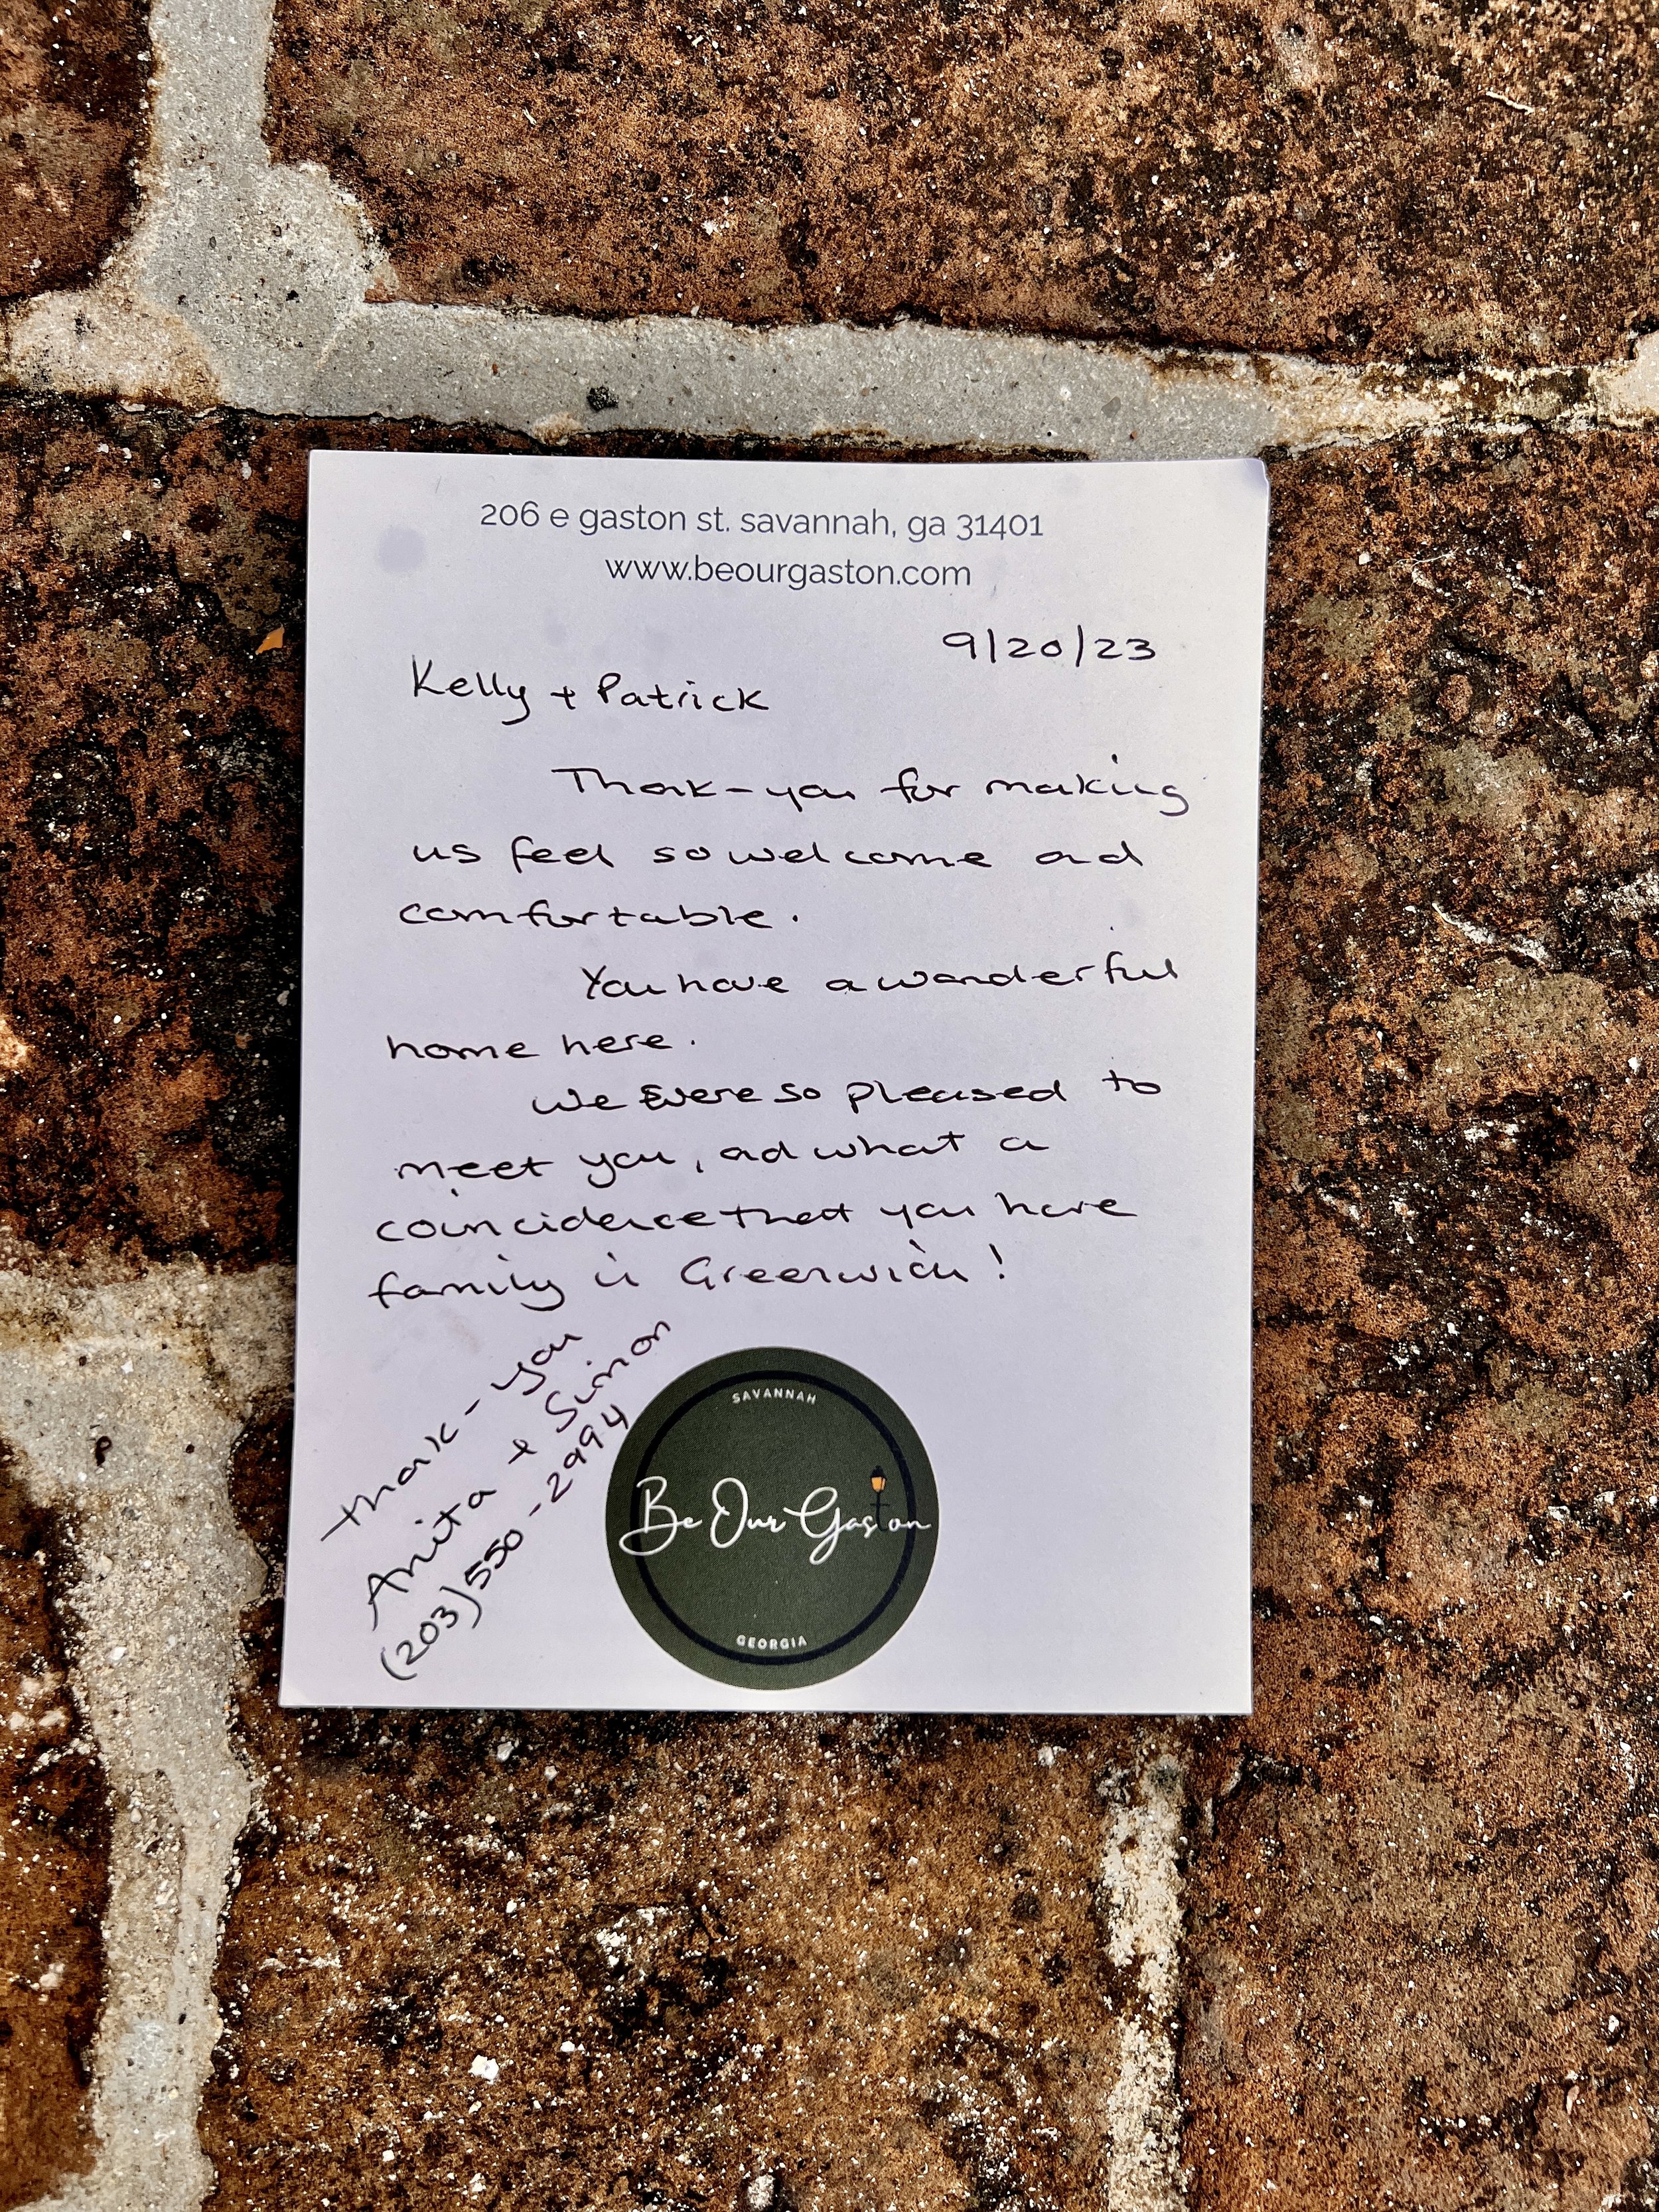 206 e gaston st. savannah, ga 31401
www.beourgaston.com
9/20/23
Kelly + Patrick
Thank-you for making
us feel so welcome and
comfortable.
You have a wonderful
home here.
We were so pleased to
meet you, and what a
coincidence that you have
family in Greenwich!
Thank-you
Anita + Simon
(203) 550-2994
SAVANNAH
Be Our Gaston
GEORGIA